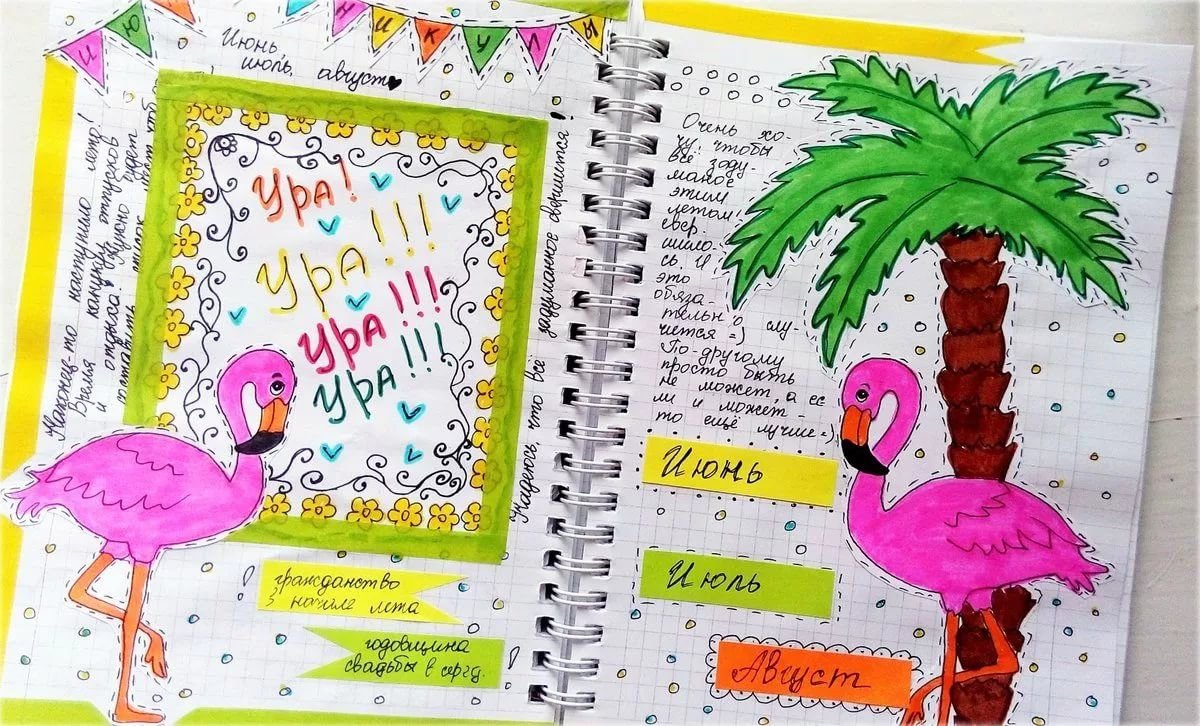 И Ю НИКУЛЫ
Июнь,
июль, август
Наконец-то наступило лето!
Время каникул, отпусков
и отдыха! Нужно будет
Ура!
Ура!!!
Ура!!!
Ура!!!
Надеюсь, что всё задуманное свершится!
гражданство
в начале лета
годовщина
свадьбы в серед.
Очень хо-
чу, чтобы
всё заду-
маное
этим
летом
свер
шило-
сь. И
это
обяза-
тельно слу-
чется =)
По-другому
просто быть
не может, а ес
ли и может -
то ещё лучше =)
Июнь
Июль
Август